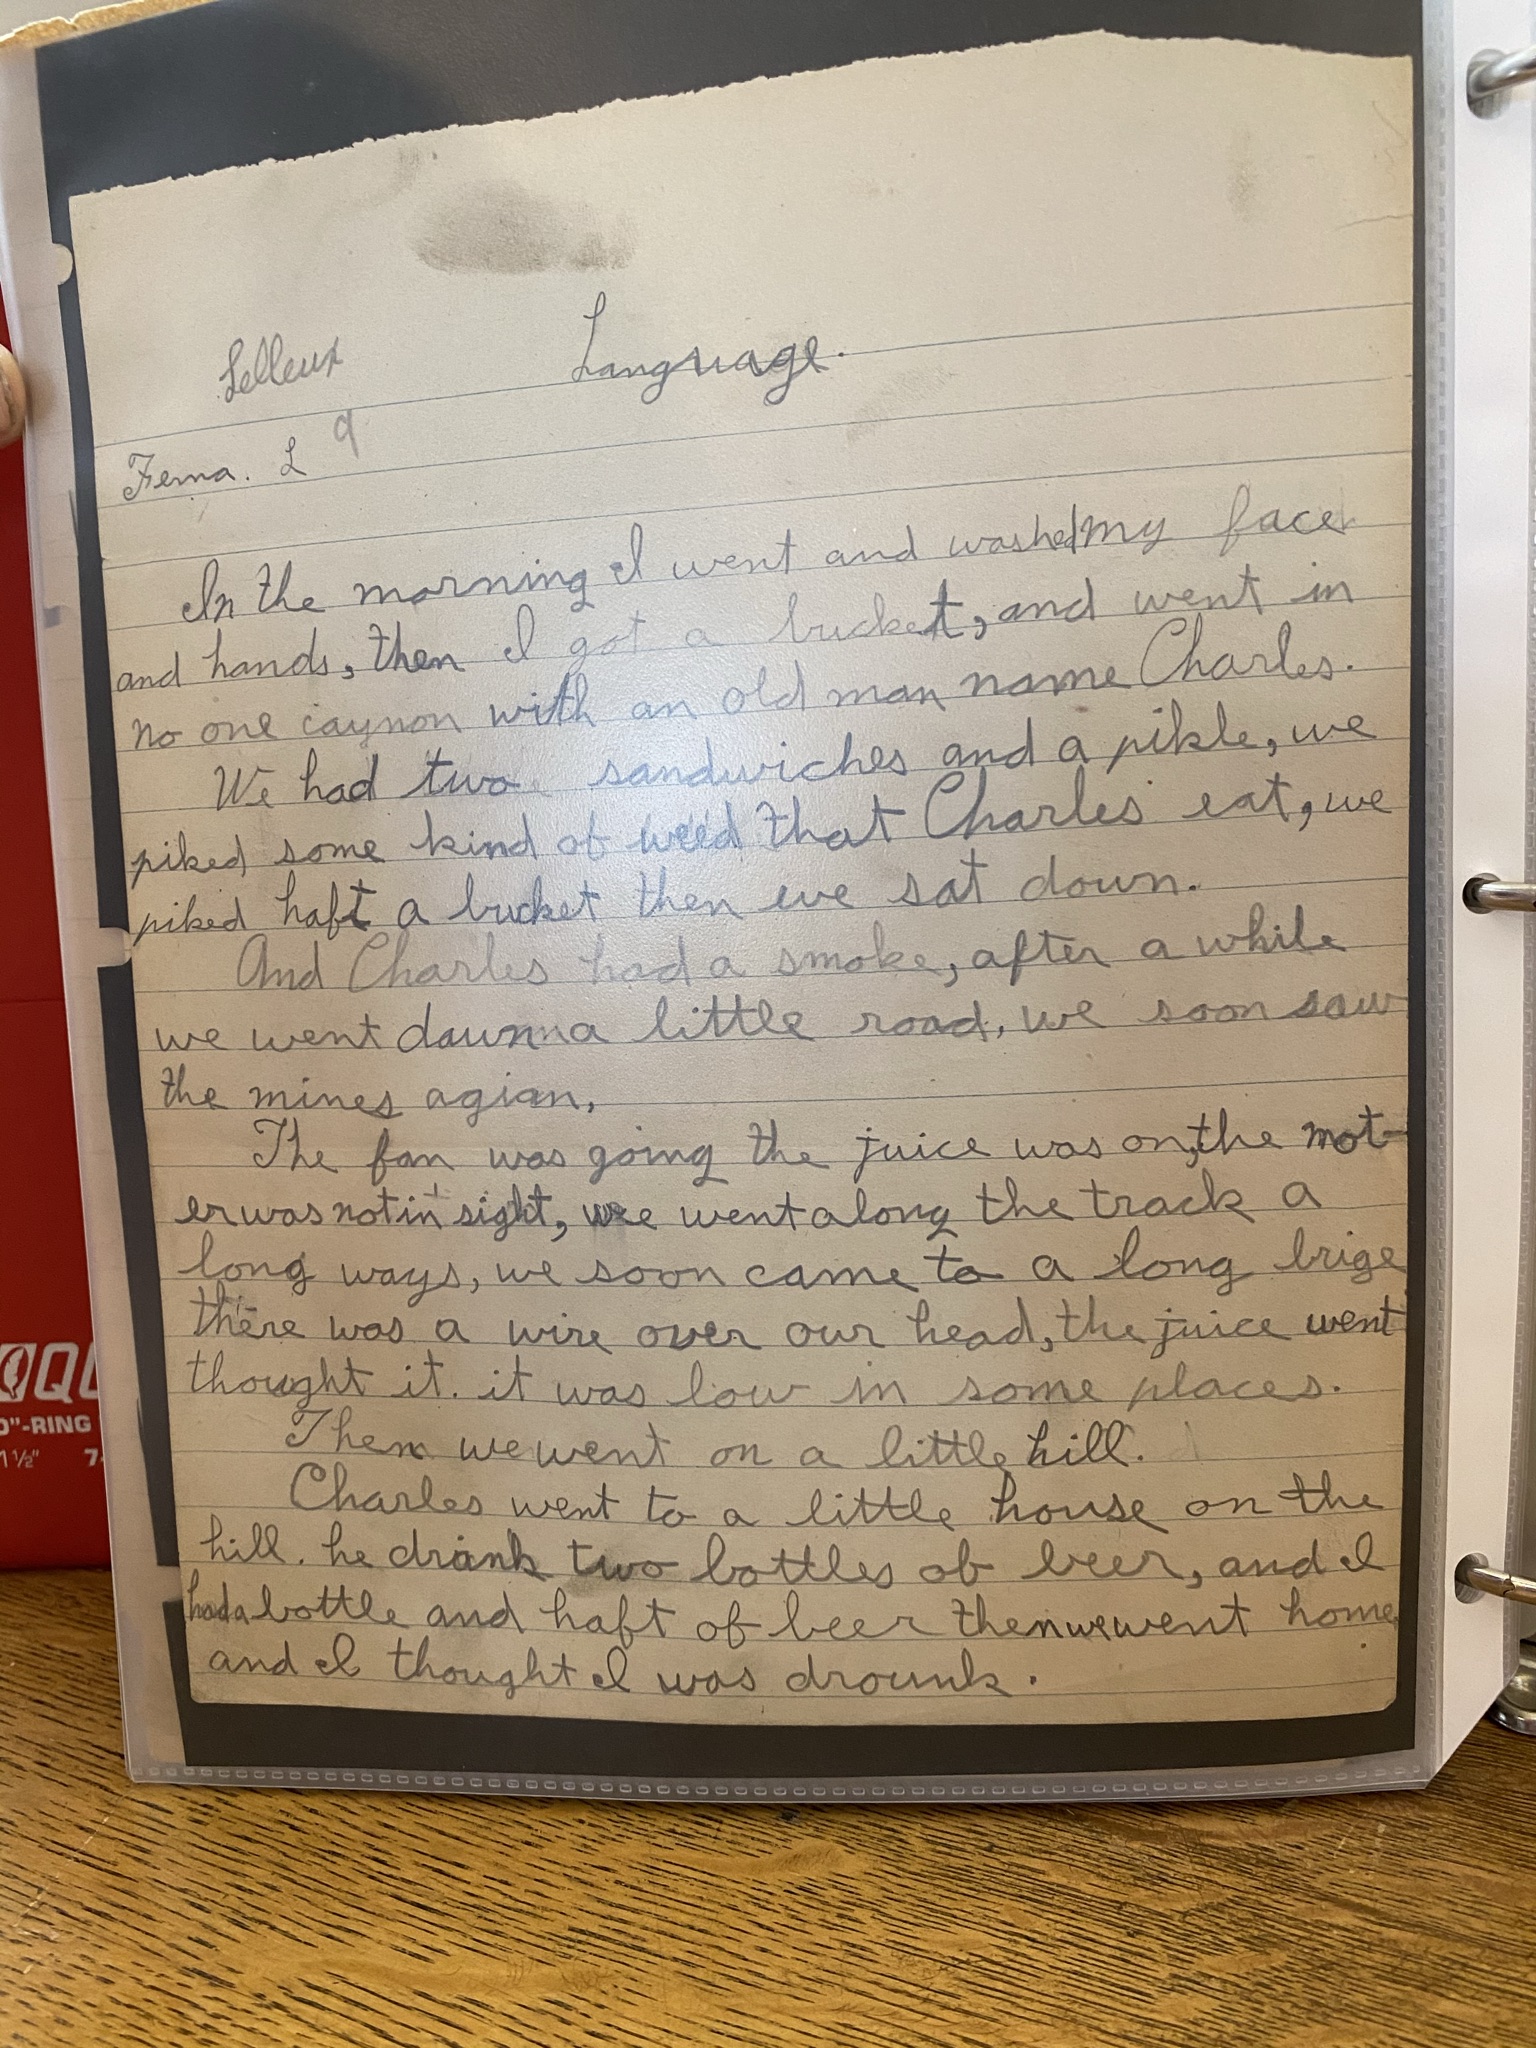 Lelleux Language.
Ferna. L 9
In the morning I went and washed my face
and hands, then I got a bucket, and went in
no one caynon with an old man name Charles.
We had two sandwiches and a pikle, we
piked some kind of weed that Charles eat, we
piked haft a bucket then we sat down.
And Charles had a smoke, after a while
we went dawn a little road, we soon saw
the mines agian,
The fan was going the juice was on, the mot-
er was not in sight, we went along the track a
long ways, we soon came to a long brige
there was a wire over our head, the juice went
thought it. it was low in some places.
Then we went on a little hill.
Charles went to a little house on the
hill. he drank two bottles of beer, and I
had a bottle and haft of beer then we went home
and I thought I was drounk.
QU
0"-RING
1 1/2"